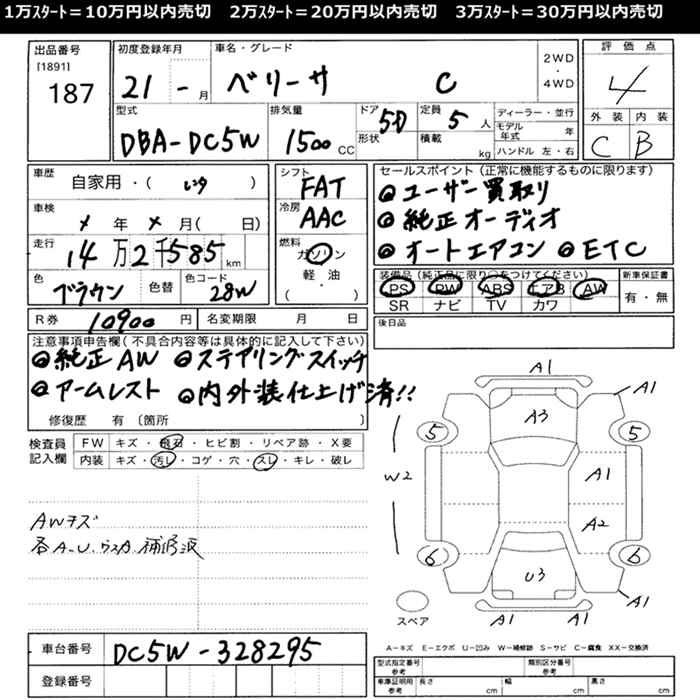 1万ｽﾀｰﾄ＝10万円以内売切　2万ｽﾀｰﾄ＝20万円以内売切　3万ｽﾀｰﾄ＝30万円以内売切
出品番号
[1891]
187
初度登録年月
21 - 月
車名・グレード
ベリーサ C
2WD・4WD
評価点
4
外装 内装
C B
型式
DBA-DC5W
排気量
1500 CC
ドア 5D
形状
定員 5 人
積載 kg
ディーラー・並行
モデル年式 年
ハンドル 左・右
車歴
自家用・( )
シフト
FAT
セールスポイント (正常に機能するものに限ります)
●ユーザー買取り
●純正オーディオ
●オートエアコン ●ETC
車検
× 年 × 月( 日)
冷房
AAC
走行
14万2千585 km
燃料
ガソリン
軽・油
・( )
色
ブラウン
色替
色コード
28W
装備品 (純正品に限り○をつけてください)
PS PW ABS エアB AW
SR ナビ TV カワ
新車保証書
有・無
R券 10900 円
名変期限 月 日
後日品
注意事項申告欄 (不具合内容等は具体的に記入して下さい)
●純正AW ●ステアリングスイッチ
●アームレスト ●内外装仕上げ済!!
修復歴 有 〔箇所 〕
検査員記入欄
FW キズ・飛石・ヒビ割・リペア跡・X要
内装 キズ・汚レ・コゲ・穴・スレ・キレ・破レ
AWキズ
各A.U.ウスA.補修波
A1
A1
A3
5
5
W2
A1
A2
6
6
U3
A1
A1
A1
スペア
A-キズ E-エクボ U-凹み W-補修跡 S-サビ C-腐食 XX-交換済
車台番号
DC5W-328295
登録番号
型式指定番号 参考
類別区分番号 参考
車庫証明用 参考
長さ cm
幅 cm
高さ cm